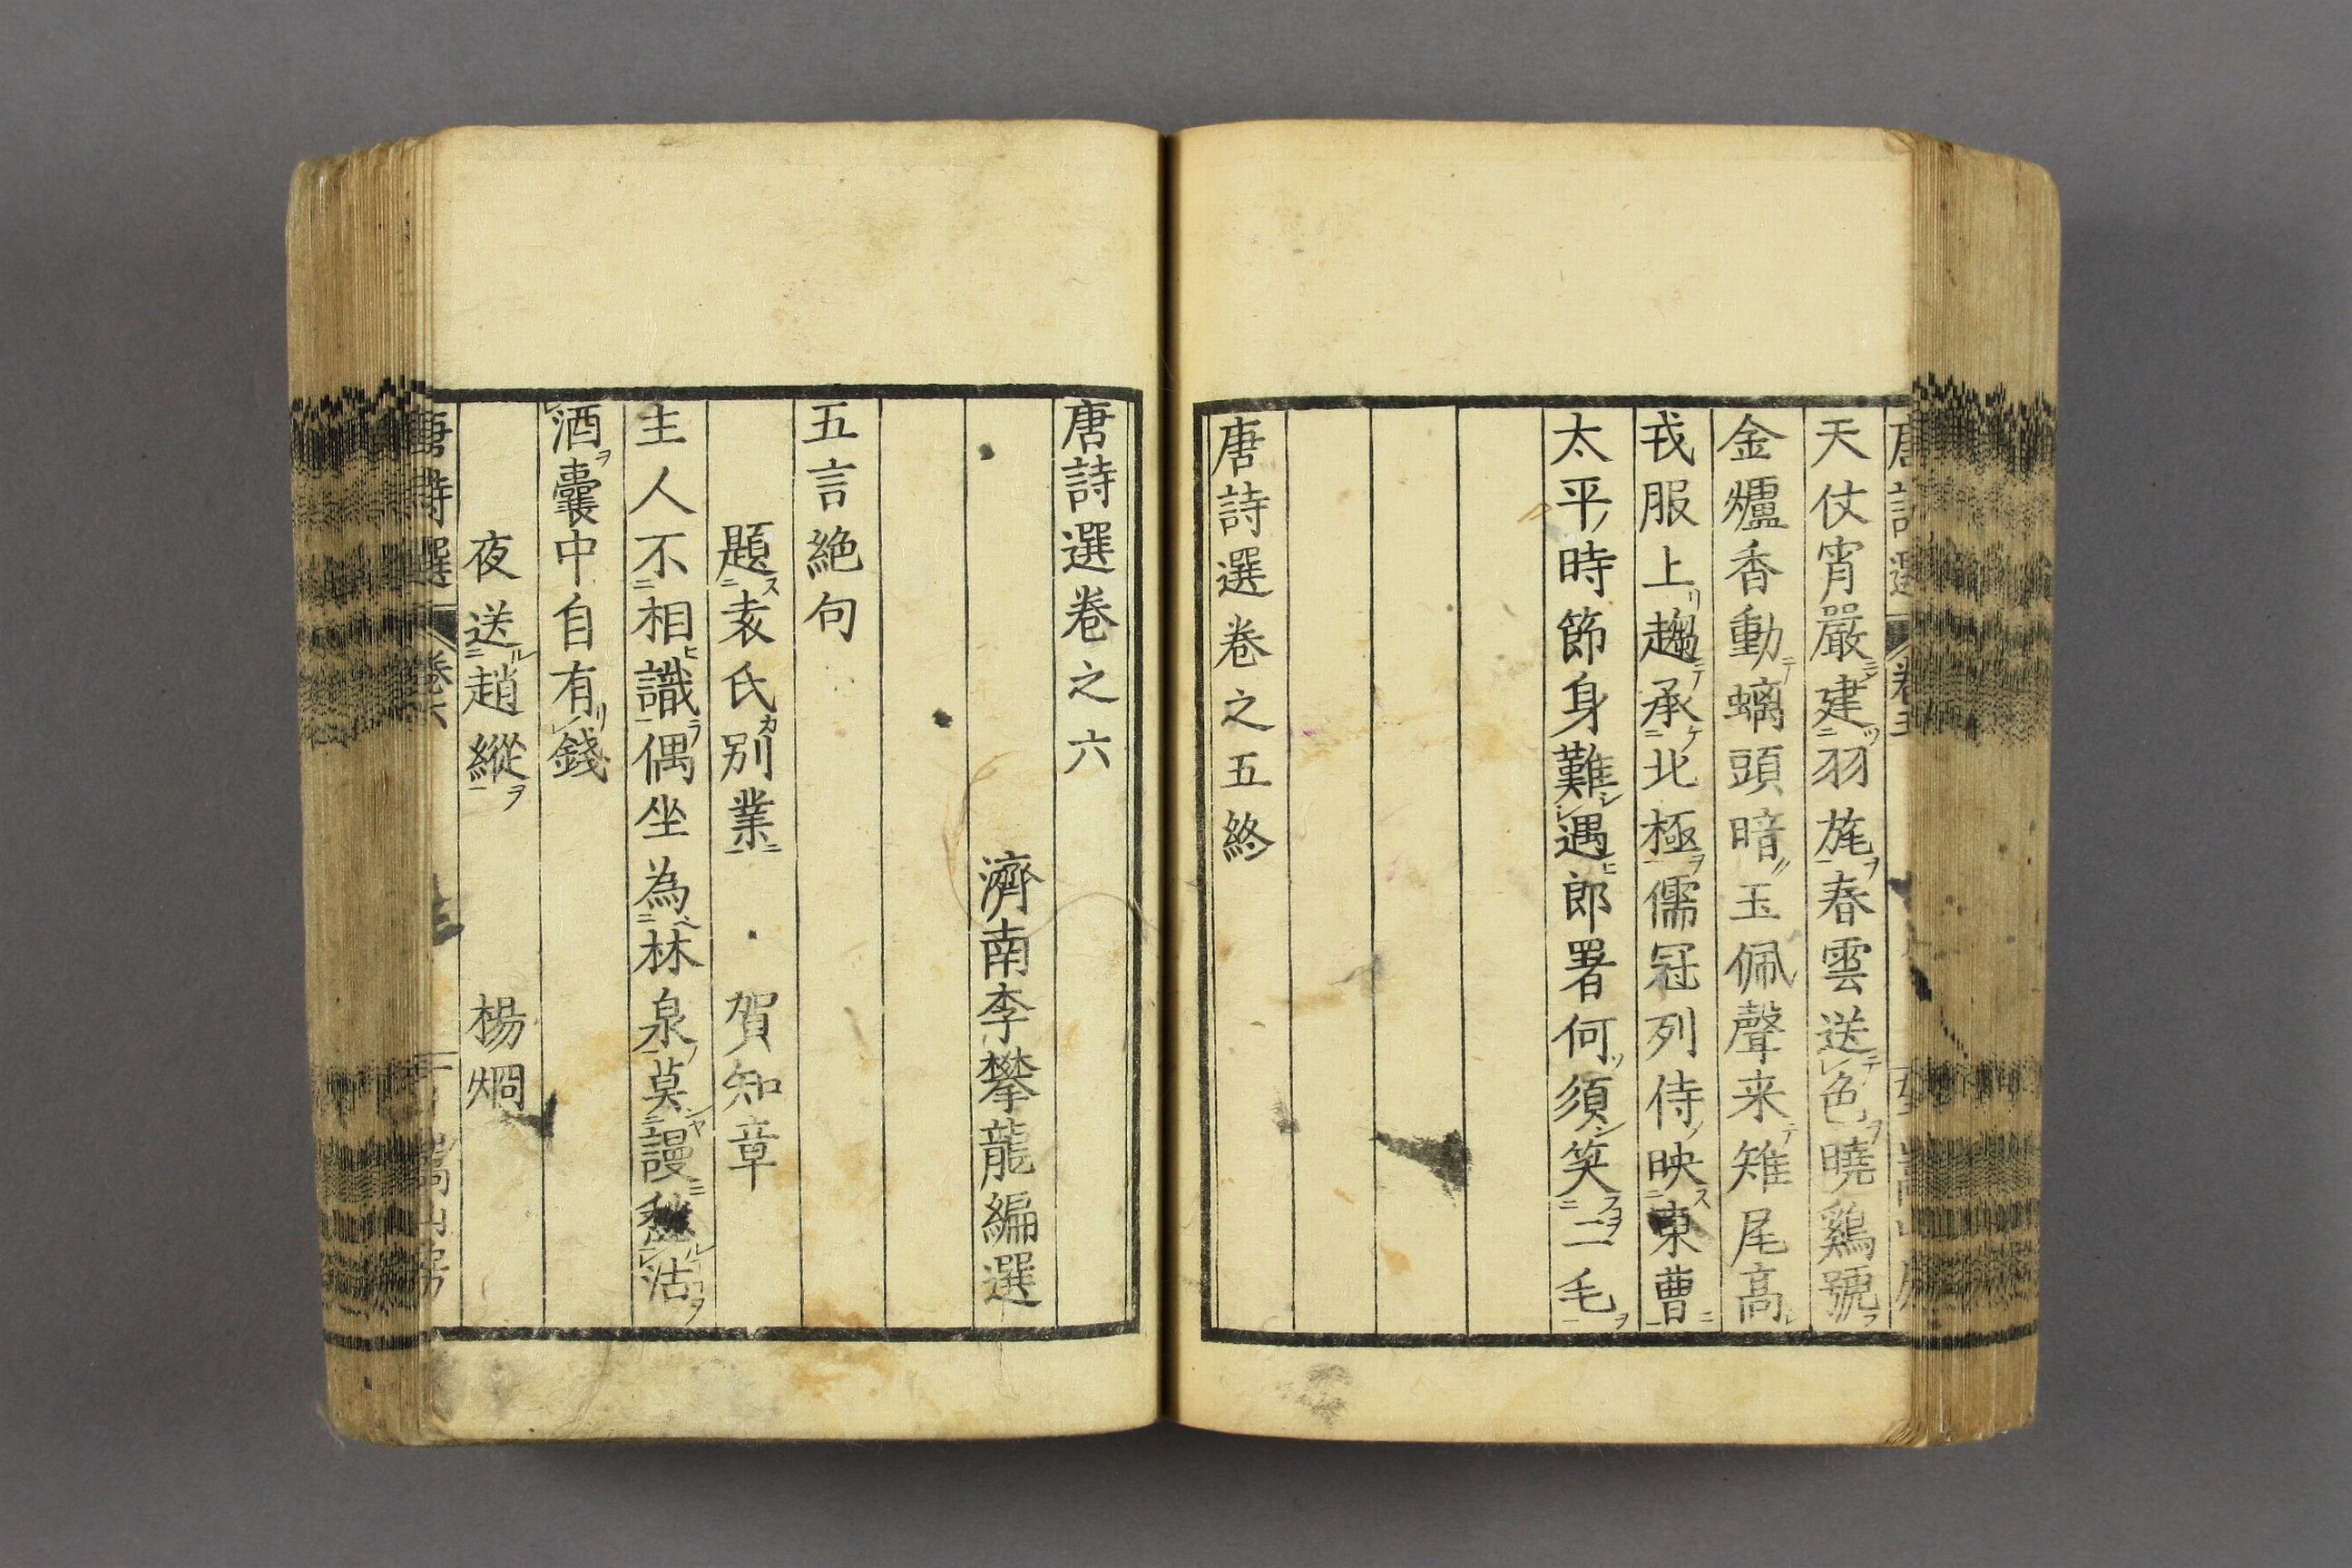 天仗宵嚴建羽旄春雲送色曉鷄號
金爐香動螭頭暗玉佩聲来雉尾高
戎服上趨承北極儒冠列侍映東曹
太平時節身難遇郎署何須笑二毛
唐詩選卷之五終
唐詩選卷之六
濟南李攀龍編選
五言絶句
題袁氏别業 賀知章
主人不相識偶坐為林泉莫謾愁沽
酒囊中自有錢
夜送趙縱 楊烱
唐詩選 卷六